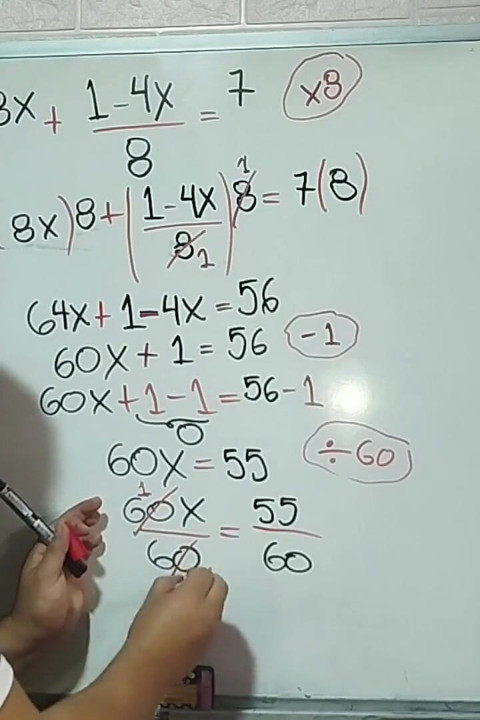 8x + (1-4x)/8 = 7 ×8
8x)8 + ((1-4x)/8 1) 8 1 = 7(8)
64x + 1 - 4x = 56
60x + 1 = 56 -1
60x + 1 - 1 = 56 - 1
0
60x = 55 ÷60
1
60x/60 = 55/60